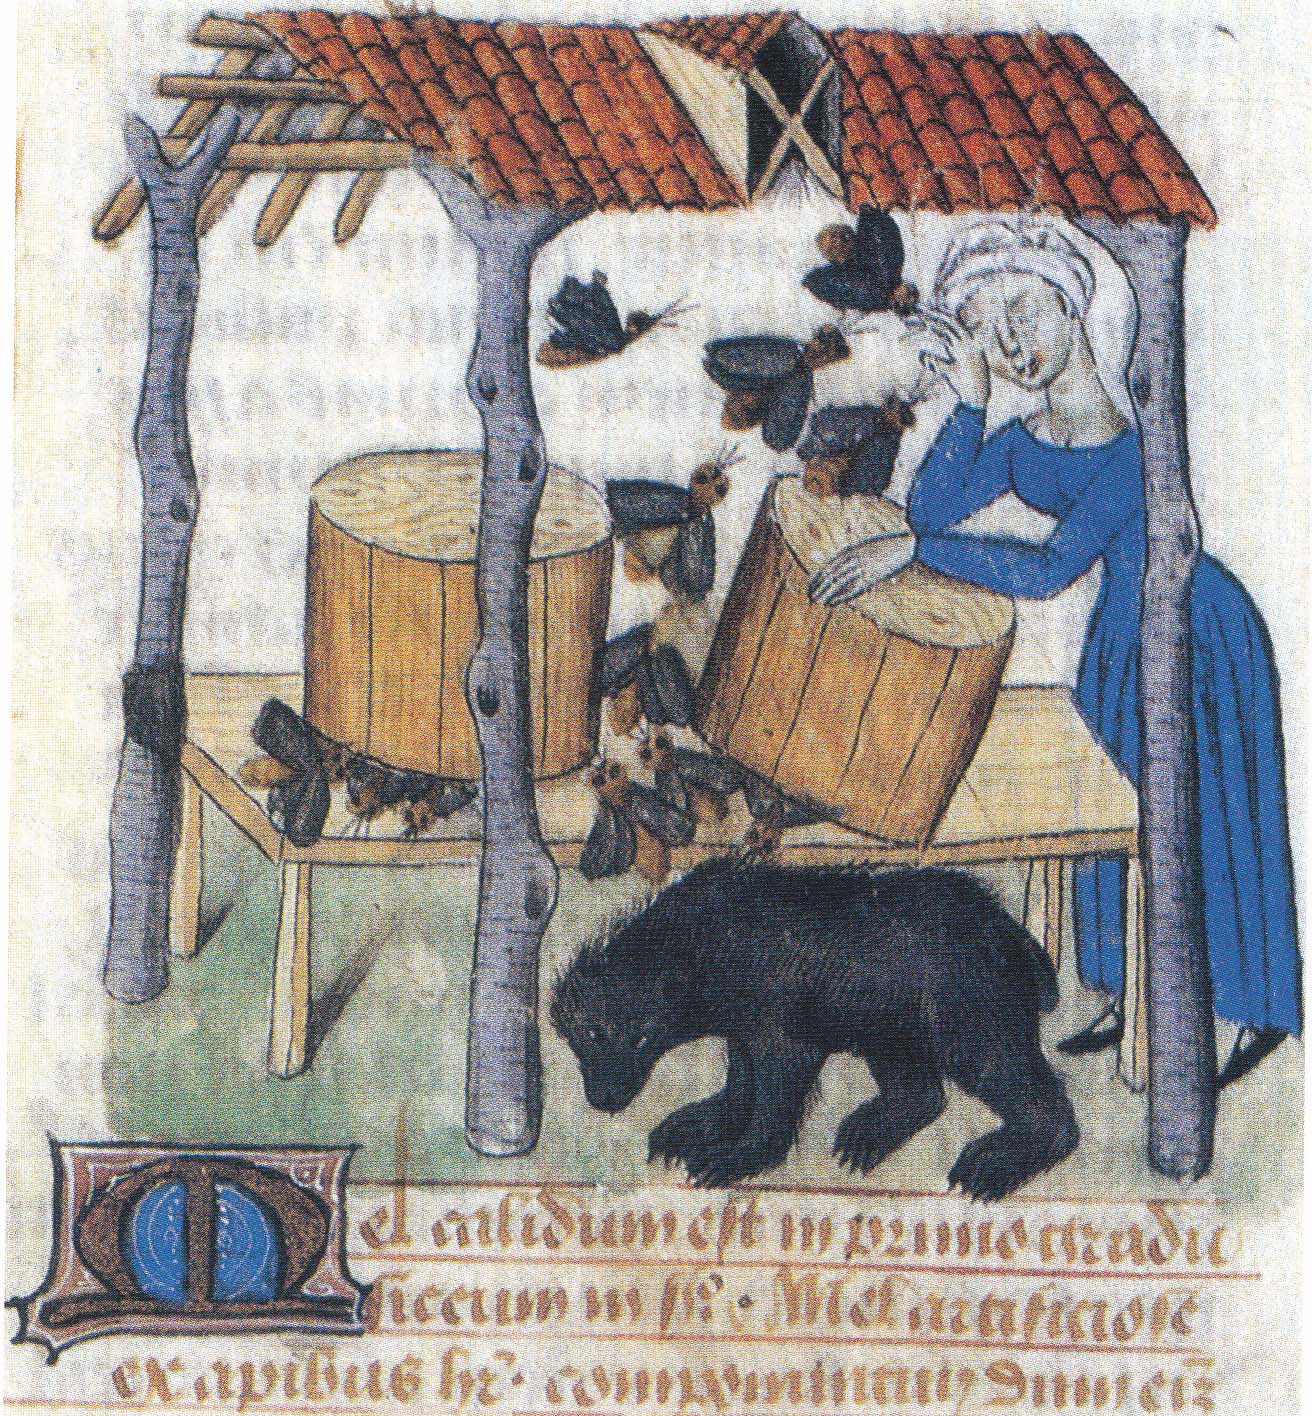 Mel calidum est in primo gradu
siccum in s̄o. Mel artificiose
ex apibus h̄r. componitur dum eis